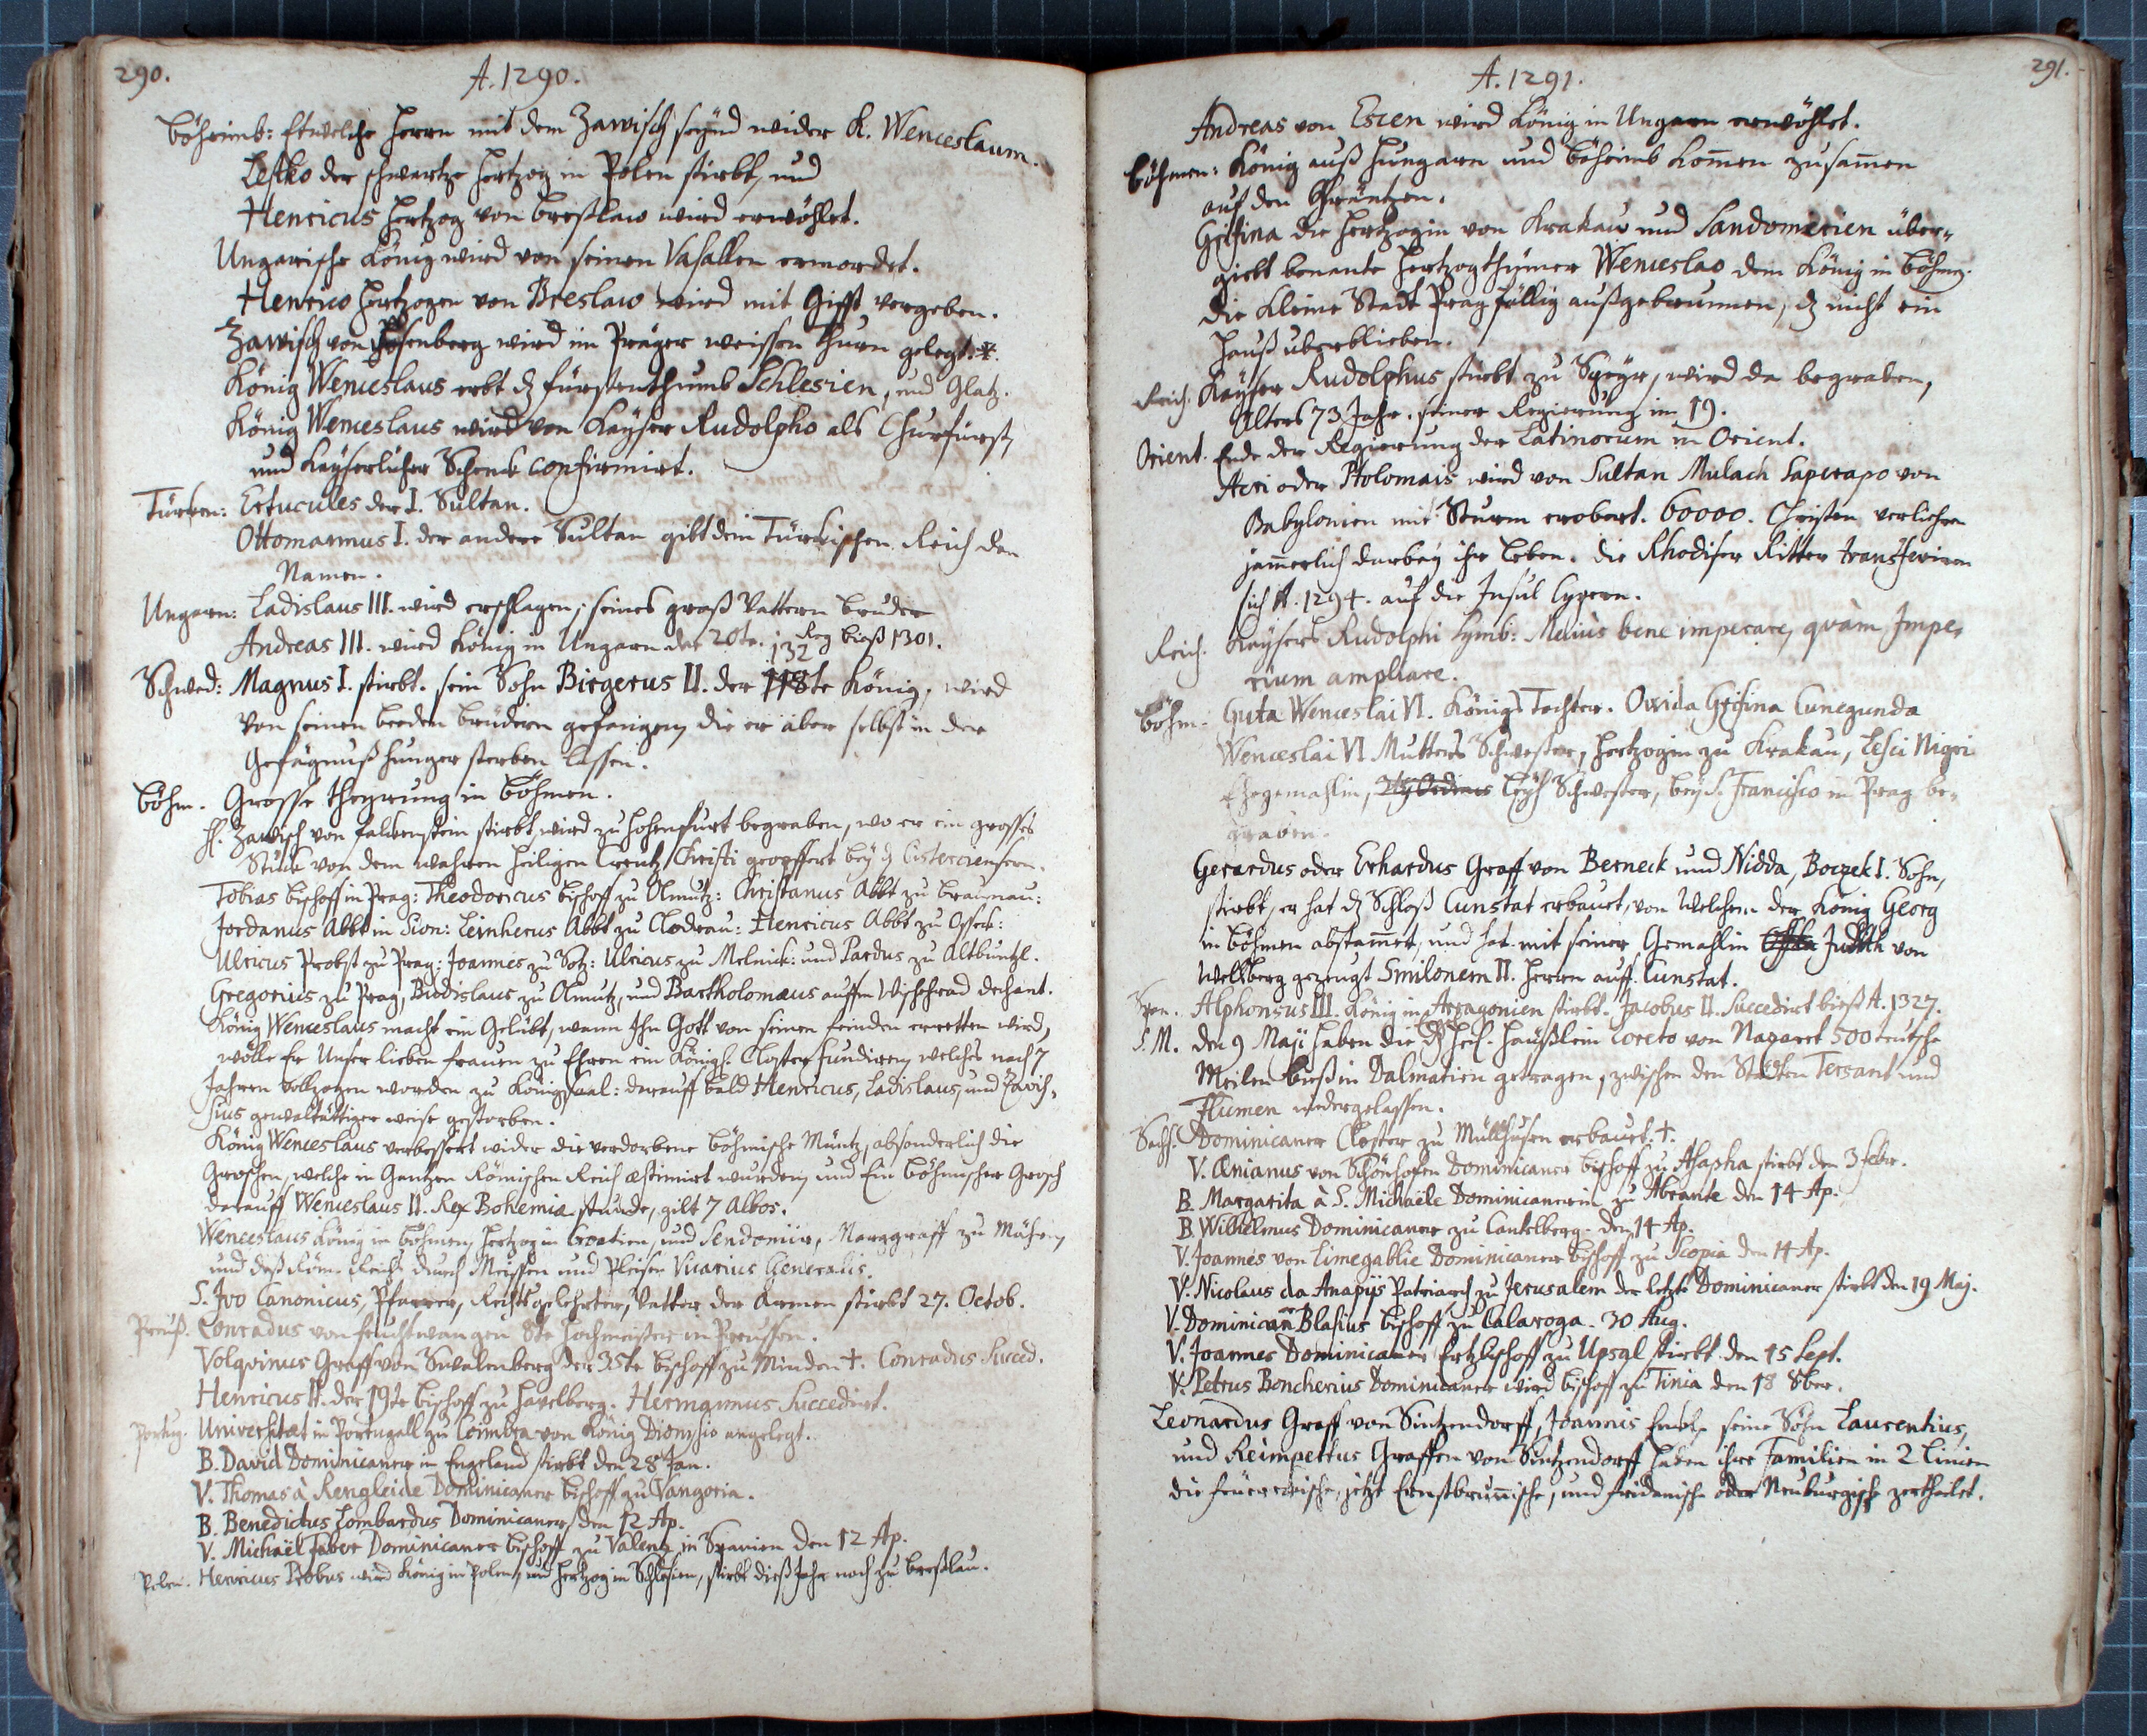 290.
A. 1290.
Böheimb: Etwelche Herrn mit dem Zawisch seynd wider K. Wenceslaum.
Lesko der schwartze Hertzog in Polen stirbt, und
Henricus Hertzog von Breßlaw wird erwöhlet.
Ungarische König wird von seinen Vasallen ermordet.
Henrico Hertzogen von Breslaw wird mit Gifft vergeben.
Zawisch von Rosenberg wird im Prager weissen thurn gelegt. *.
König Wenceslaus erbt dz fürstenthumb Schlesien, und Glatz.
König Wenceslaus wird von Kayser Rudolpho als Churfürst,
und Kayserlicher Schenck confirmirt.
Türken: Ertucules der I. Sultan.
Ottomannus I. der andere Sultan gibt dem Türckischen Reich den
Namen.
Ungarn: Ladislaus III. wird erschlagen, seines groß Vattern bruder
Andreas III. wird König in Ungarn der 20te. Reg bieß 1301.
132
Schwed: Magnus I. stirbt. sein Sohn Birgerus II. der 118te König, wird
von seinen beeden brüdern gefangen, die er aber selbst in der
Gefägnuß hunger sterben lassen.
Böhm. Grosse theyrung in Böhmen.
H. Zawisch von falckenstein stirbt, wird zu Hohenfurt begraben, wo er ein grosses
Stuck von dem wahren heiligen Creutz Christi geopffert bey d Cisterciensern.
Tobias bischoff in Prag: Theodoricus bischoff zu Olmutz: Christanus Abbt zu braunau:
Jordanus Abbt in Sion: Leinherus Abbt zu Cladrau: Henricus Abbt zu Osseck:
Ulricus Probst zu Prag: Joannes zu Sotz: Ulricus zu Melnick: und Pardus zu Altbuntzl.
Gregorius zu Prag, Budislaus zu Olmutz, und Bartholomæus auffn Wischehrad dechant.
König Wenceslaus macht ein Gelübt, wann Ihn Gott von seinen feinden erretten wird,
wölle Er Unser lieben frauen zu Ehren ein Königl. Closter fundiren, welches nach 7
Jahren vollzogen worden zu Königsaal: darauff bald Henricus, Ladislaus, und Zavich-
sius gewaltättiger weise gestorben.
König Wenceslaus verbessert wider die verdorbene böhmische Müntz, absonderlich die
Groschen, welche in Gantzen Römischen Reich æstimirt wurden, und Ein böhmischer Grosch
darauff Wenceslaus II. Rex Bohemiæ stunde, gilt 7 Albos.
Wenceslaus König in böhmen, Hertzog in Croatien, und Sendomiir, Marggraff zu Mähren,
und deß Röm. Reichs durch Meissen und Pleisen Vicarius Generalis.
S. Ivo Canonicus, Pfarrer, Rechtsgelehrter, Vatter der Armen stirbt 27. Octob.
Preuß. Conradus von feuchtwangen 8te Hochmeister in Preussen.
Volqvinus Graff von Swalenberg der 35te bischoff zu Minden †. Conradus Succed.
Henricus II. der 19te bischoff zu Havelberg. Hermannus Succedirt.
Portug. Universitæt in Portugall zu Coimbra von König Dionysio angelegt.
B. David Dominicaner in Engeland stirbt den 28 Jan.
V. Thomas à Rengleide Dominicaner bischoff zu Vangoria.
B. Benedictus Lombardus Dominicaner, den 12 Ap.
V. Michaël Faber Dominicaner bischoff zu Valenz in Spanien den 12 Ap.
Polen. Henricus Probus wird König in Polen, und Hertzog in Schlesien, stirbt dieß Jahr noch zu breßlau.
291.
A. 1291.
Andreas von Escen wird König in Ungarn erwöhlet.
Böhmen: König auß Hungarn und böheimb komen zusamen
auf den Gräntzen.
Griffina die Hertzogin von Krakau und Sandomerien über-
giebt benante Hertzogthümer Wenceslao dem König in böhmen.
Die Kleine Stadt Prag föllig außgebrunnen, dz nicht ein
Hauß uberblieben.
Reich. Kayser Rudolphus stirbt zu Speyr, wird da begraben,
Alters 73 Jahr. seiner Regierung im 19.
Orient. Ende der Regierung der Latinorum in Orient.
Acri oder Ptolomais wird von Sultan Mulach Saperapo von
Babylonien mit Sturm erobert. 60000. Christen verliehren
jämerlich darbey ihr Leben. die Rhodiser Ritter transferiren
sich A. 1294. auf die Insul Cypern.
Reich. Kaysers Rudolphi Symb: Meliùs bene imperare, qvàm Impe-
rium ampliare.
Böhm. Guta Wenceslai VI. Königs Tochter. Griffina Cunegunda
Wenceslai VI Mutters Schwester, Hertzogin zu Krakau, Lesci Nigri
Ehegemahlin, Schwester, bey S. Francisco in Prag be-
graben.
Gerardus oder Erhardus Graff von Berneck und Nidda, Boczek I. Sohn,
stirbt, er hat dz Schloß Cunstat erbauet, von Welchem der König Georg
in böhmen abstammet, und hat mit seiner Gemahlin Judith von
Wellberg gezeugt Smilonem II. Herrn auff Cunstat.
Span. Alphonsus III. König in Arragonien stirbt. Jacobus II. Succedirt bieß A. 1327.
S. M. den 9 Maji haben die Heil. Häußlein Loreto von Nazaret 500 teutsche
Meilen bieß in Dalmatien getragen, zwischen den Stödten Tersant und
Flumen nidergelassen.
Sachß. Dominicaner Closter zu Müllhusen erbauet. †.
V. Ænianus von Schönhofen Dominicaner bischoff zu Asapha stirbt den 3 febr.
B. Margarita à S. Michaële Dominicanerin zu Abrante den 14 Ap.
B. Wilhelmus Dominicaner zu Cantelberg. den 14 Ap.
V. Joannes von Limegablie Dominicaner bischoff zu Scopia den 14 Ap.
V. Nicolaus da Anapijs Patriarch zu Jerusalem der letzte Dominicaner stirbt den 19 Maj.
V. Dominicaner Blasius bischoff zu Calaroga. 30 Aug.
V. Joannes Dominicaner Ertzbischoff zu Upsal stirbt den 15 Sept.
V. Petrus Boncherius Dominicaner wird bischoff zu Tinia den 18 8ber.
Leonardus Graff von Sintzendorff, Joannis Enckl, seine Söhn Laurentius,
und Reimpertus Graffen von Sintzendorff haben ihre Familien in 2 Linien
die feuereckische, jetzt Ernstbrunnische, und fridauische oder Neuburgische zertheilet.